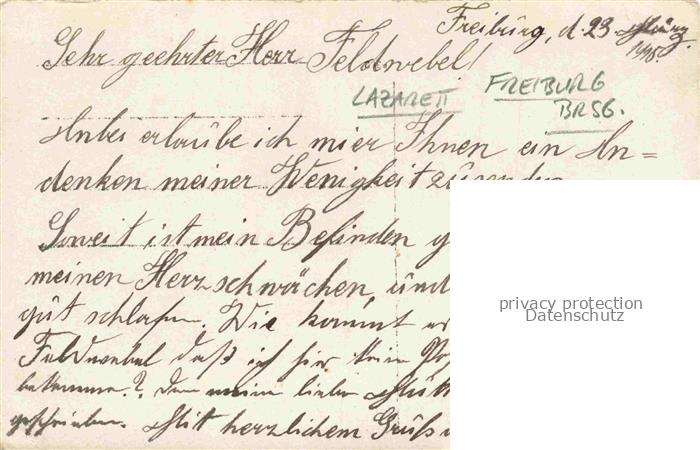 Freiburg, d. 23 März
1918.
Sehr geehrter Herr Feldwebel!
LAZARETT FREIBURG
BRSG.
Anbei erlaube ich mier Ihnen ein An=
denken meiner Wenigkeit zu
Soweit ist mein Befinden g
meinen Herzschwächen, und
gut schlafen. Wie kommt
Feldwebel daß ich hier kein
bekomme.? Den meine liebe
geschrieben. Mit herzlichem Gruß
privacy protection
Datenschutz